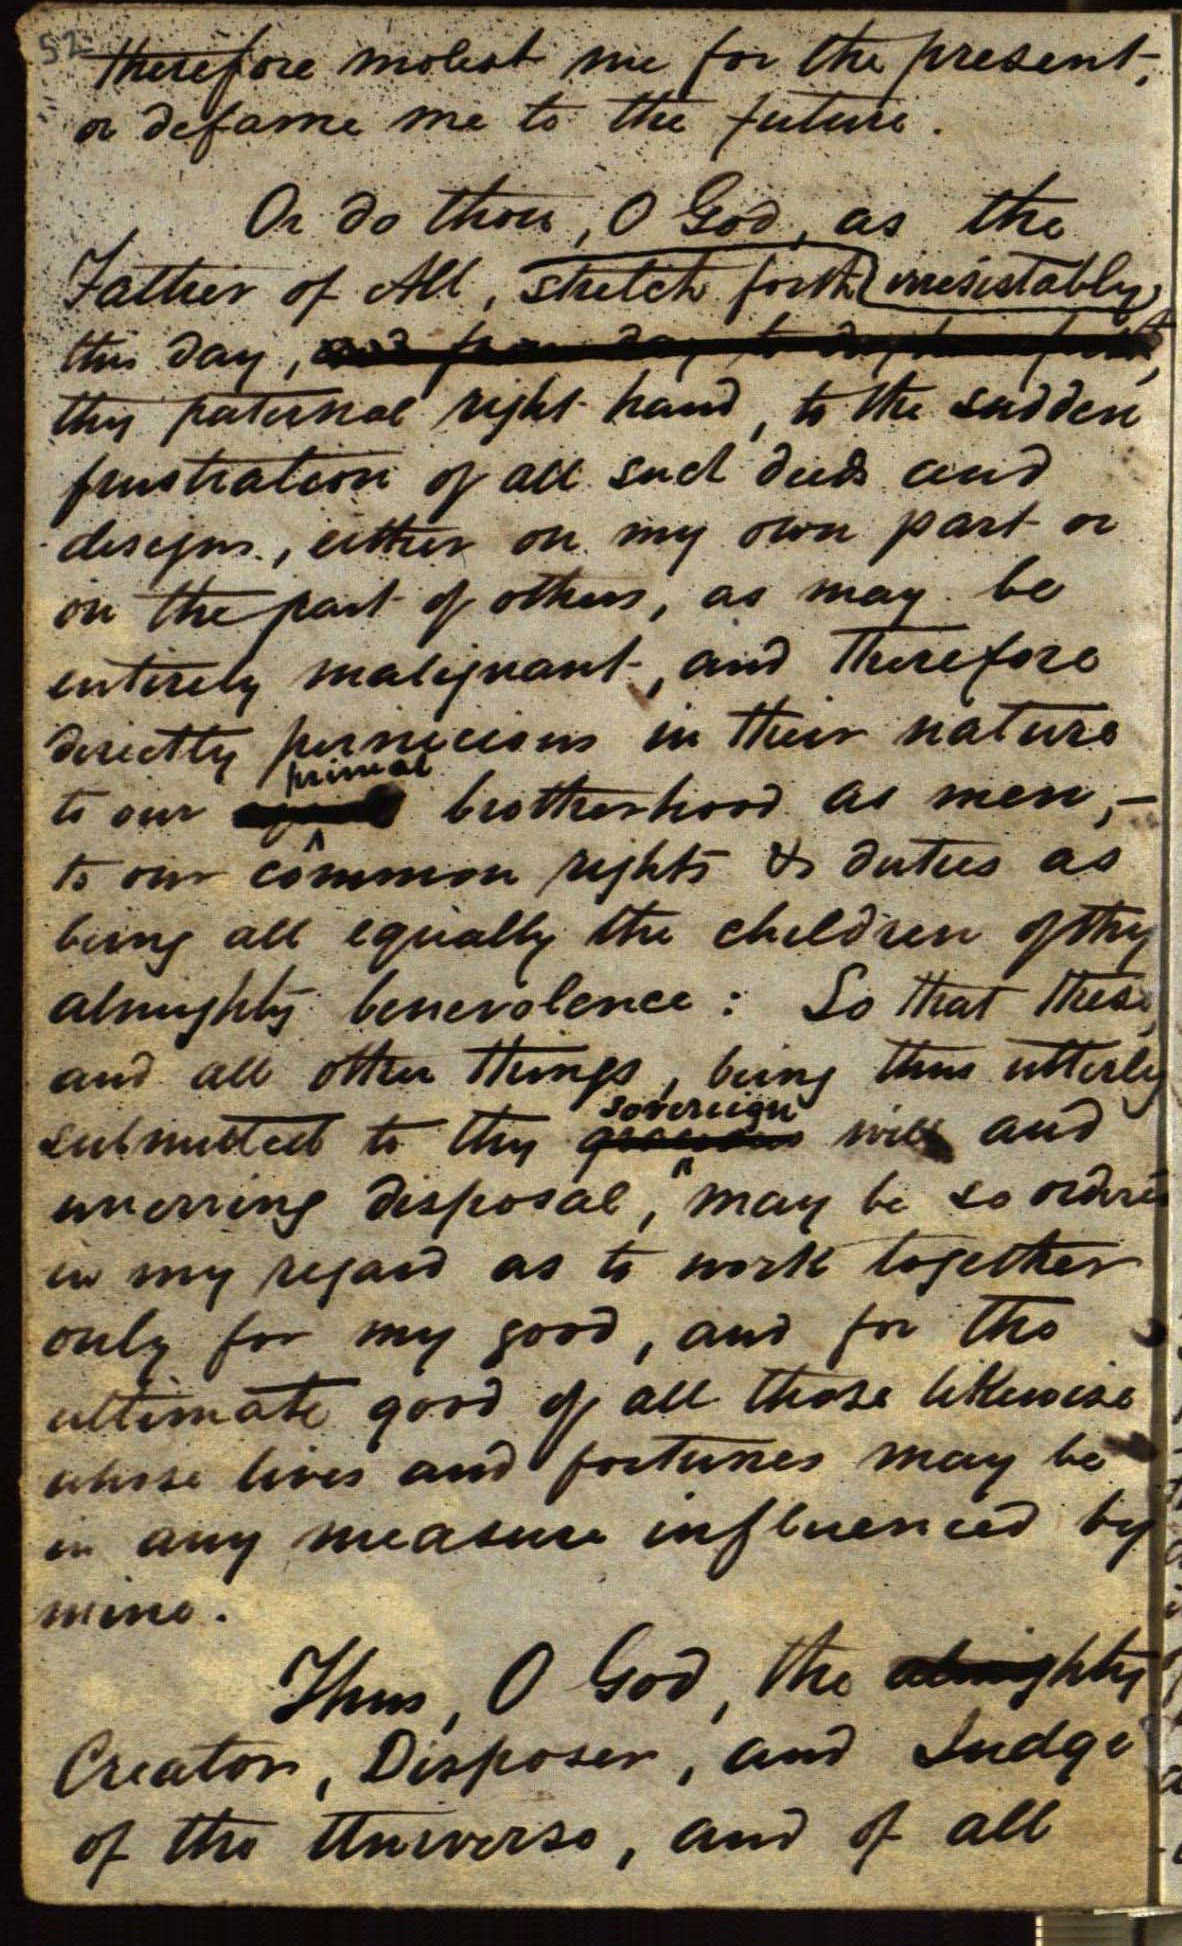 52
therefore molest me for the present,
or defame me to the future.
Or do thou, O God, as the
Father of All, stretch forth irresistably,
this day, and from day to day
thy paternal right hand, to the sudden
frustration of all such deeds and
designs, either on my own part or
on the part of others, as may be
entirely malignant, and therefore
directly pernicious in their nature
primal
to our brotherhood as men,—
to our common rights & duties as
being all equally the children of thy
almighty benevolence: So that these,
and all other things, being thus utterly
sovereign
submitted to thy gracious will and
unerring disposal, may be so ordered
in my regard as to work together
only for my good, and for the
ultimate good of all those likewise
whose lives and fortunes may be
in any measure influenced by
mine.
Thus, O God, the almighty
Creator, Disposer, and Judge
of the Universe, and of all